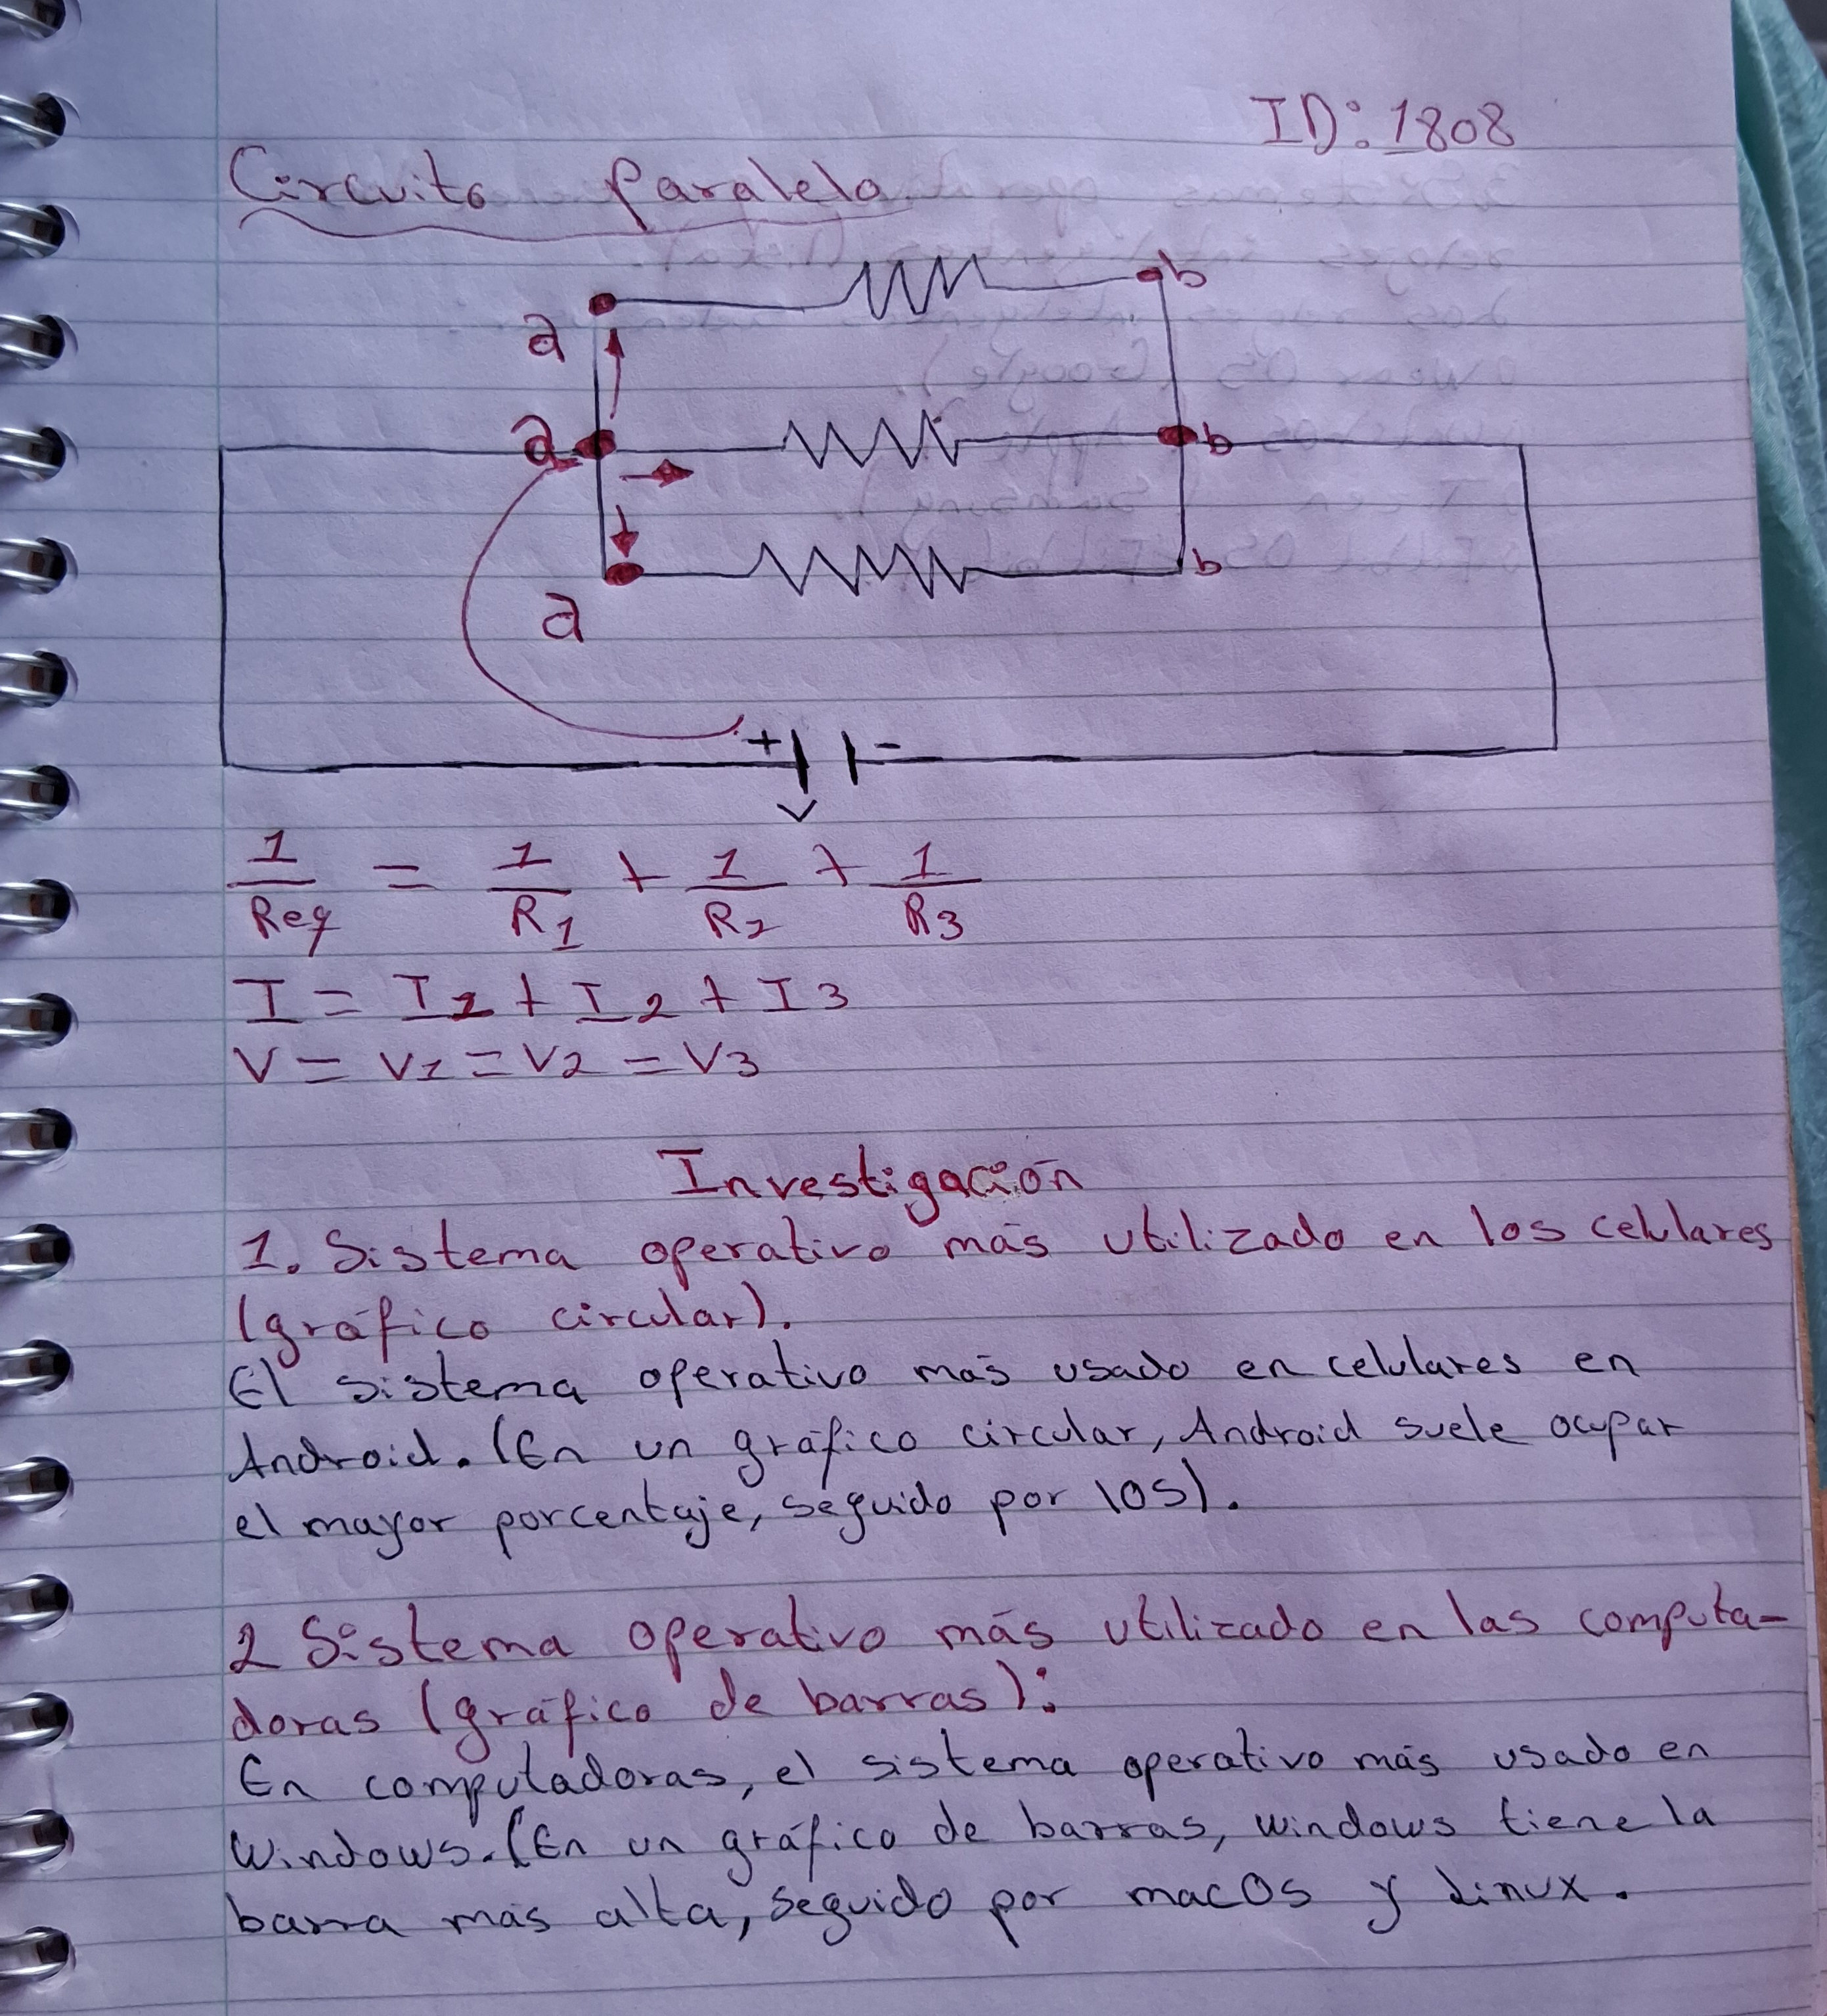 ID: 1808
Circuito Paralelo
a
b
a
b
a
b
+ -
V
1/Req = 1/R1 + 1/R2 + 1/R3
I = I1 + I2 + I3
V = V1 = V2 = V3
Investigación
1. Sistema operativo más utilizado en los celulares
(gráfico circular).
El sistema operativo más usado en celulares en
Android. (En un gráfico circular, Android suele ocupar
el mayor porcentaje, seguido por IOS).
2 Sistema operativo más utilizado en las computa-
doras (gráfico de barras):
En computadoras, el sistema operativo más usado en
Windows. (En un gráfico de barras, windows tiene la
barra más alta, seguido por macOS y Linux.